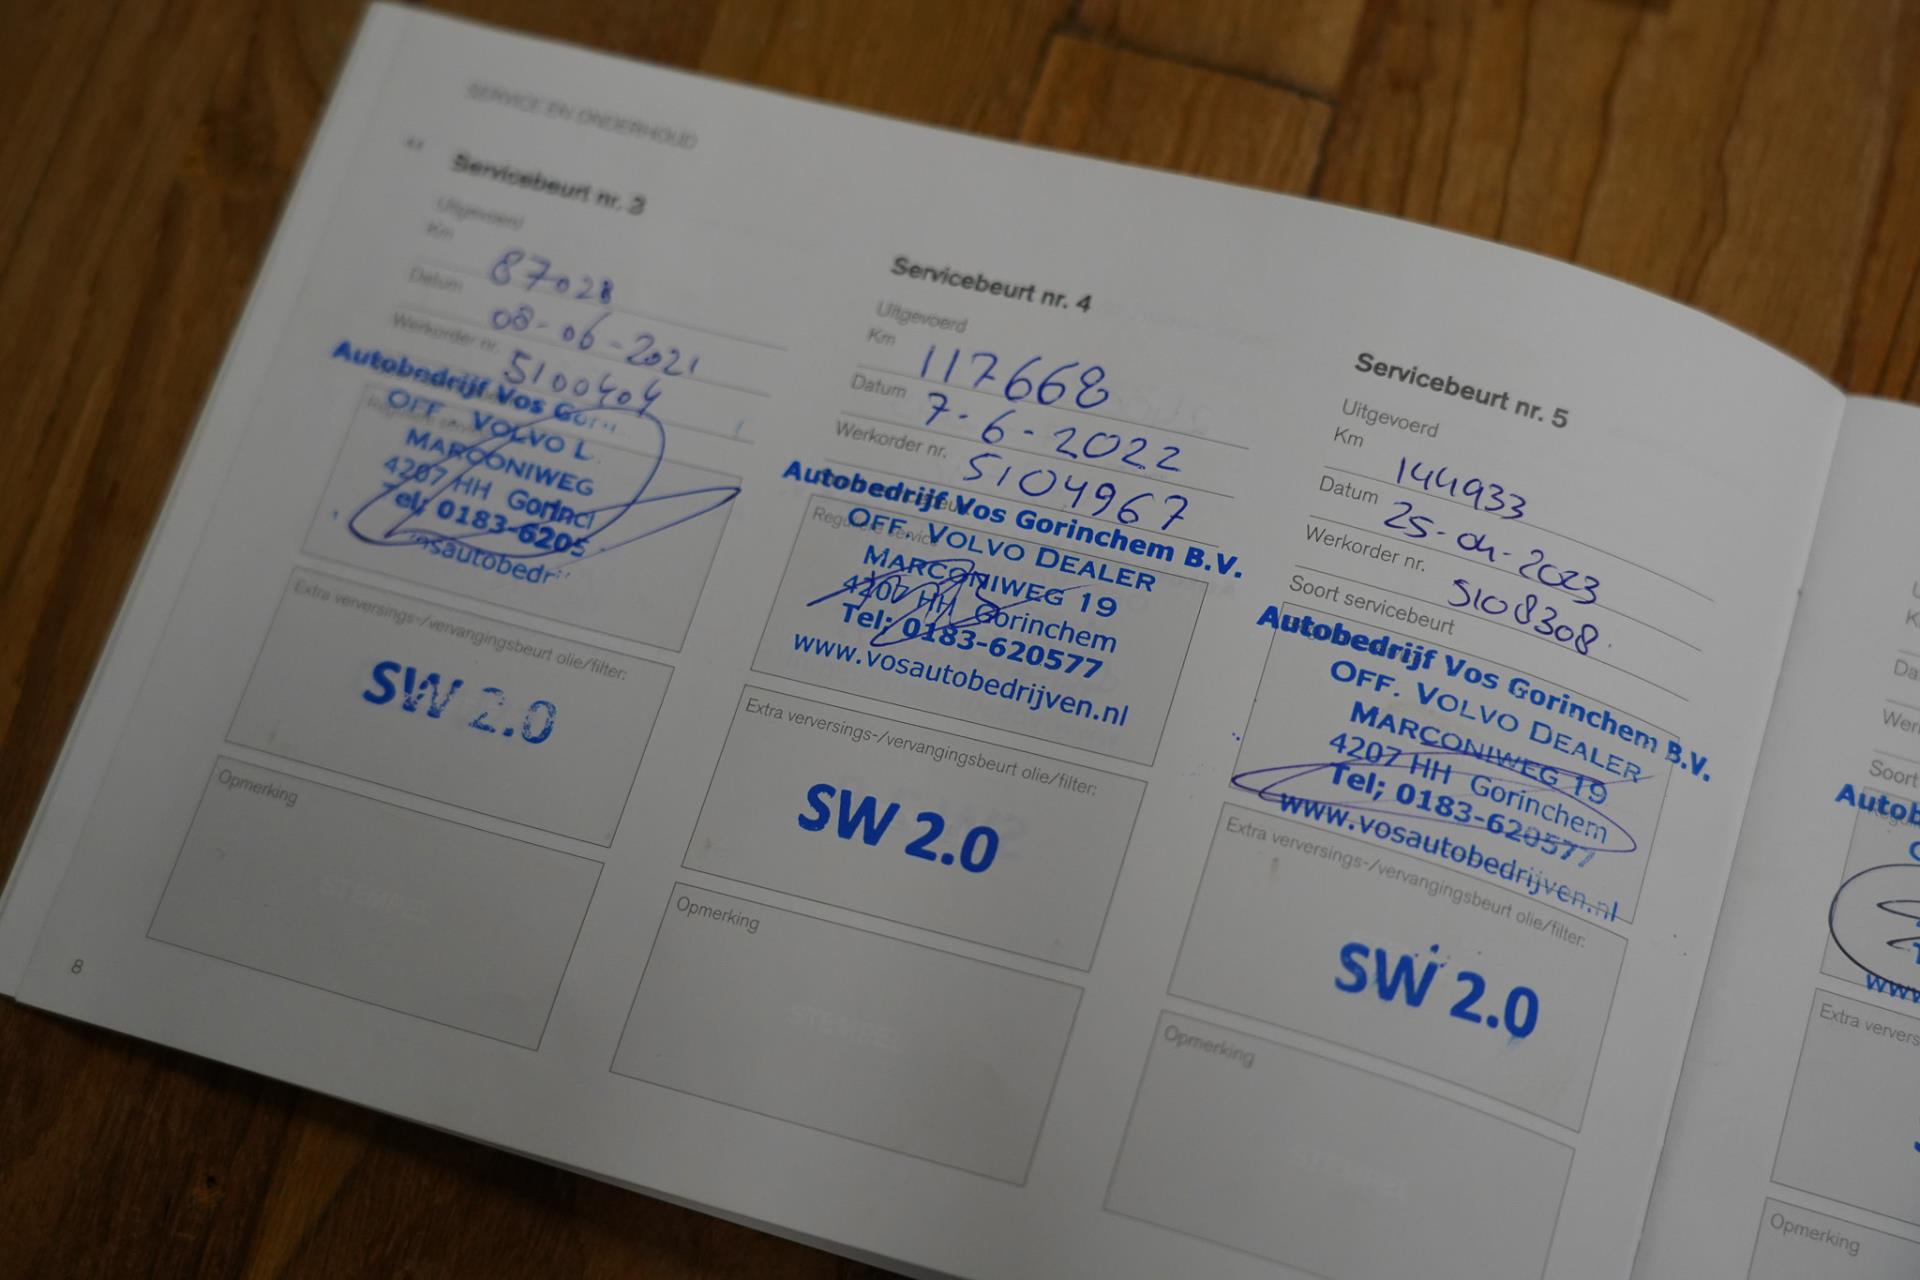 SERVICE EN ONDERHOUD
Servicebeurt nr. 3
Uitgevoerd
Km 87028
Datum 08-06-2021
Werkorder nr. 5100404
Autobedrijf Vos Gor
OFF. VOLVO
MARCONIWEG
4207 HH Gorinc
Tel; 0183-6205
Extra verversings-/vervangingsbeurt olie/filter:
SW 2.0
Opmerking
STEMPEL
8
Servicebeurt nr. 4
Uitgevoerd
Km 117668
Datum 7-6-2022
Werkorder nr. 5104967
Reguliere service
Autobedrijf Vos Gorinchem B.V.
OFF. VOLVO DEALER
MARCONIWEG 19
4207 HH Gorinchem
Tel; 0183-620577
www.vosautobedrijven.nl
Extra verversings-/vervangingsbeurt olie/filter:
SW 2.0
Opmerking
STEMPEL
Servicebeurt nr. 5
Uitgevoerd
Km 144933
Datum 25-04-2023
Werkorder nr. 5108308.
Soort servicebeurt
Autobedrijf Vos Gorinchem B.V.
OFF. VOLVO DEALER
MARCONIWEG 19
4207 HH Gorinchem
Tel; 0183-620577
www.vosautobedrijven.nl
Extra verversings-/vervangingsbeurt olie/filter:
SW 2.0
Opmerking
STEMPEL
Da
Wer
Soort
Autob
www
Extra ververs
Opmerking